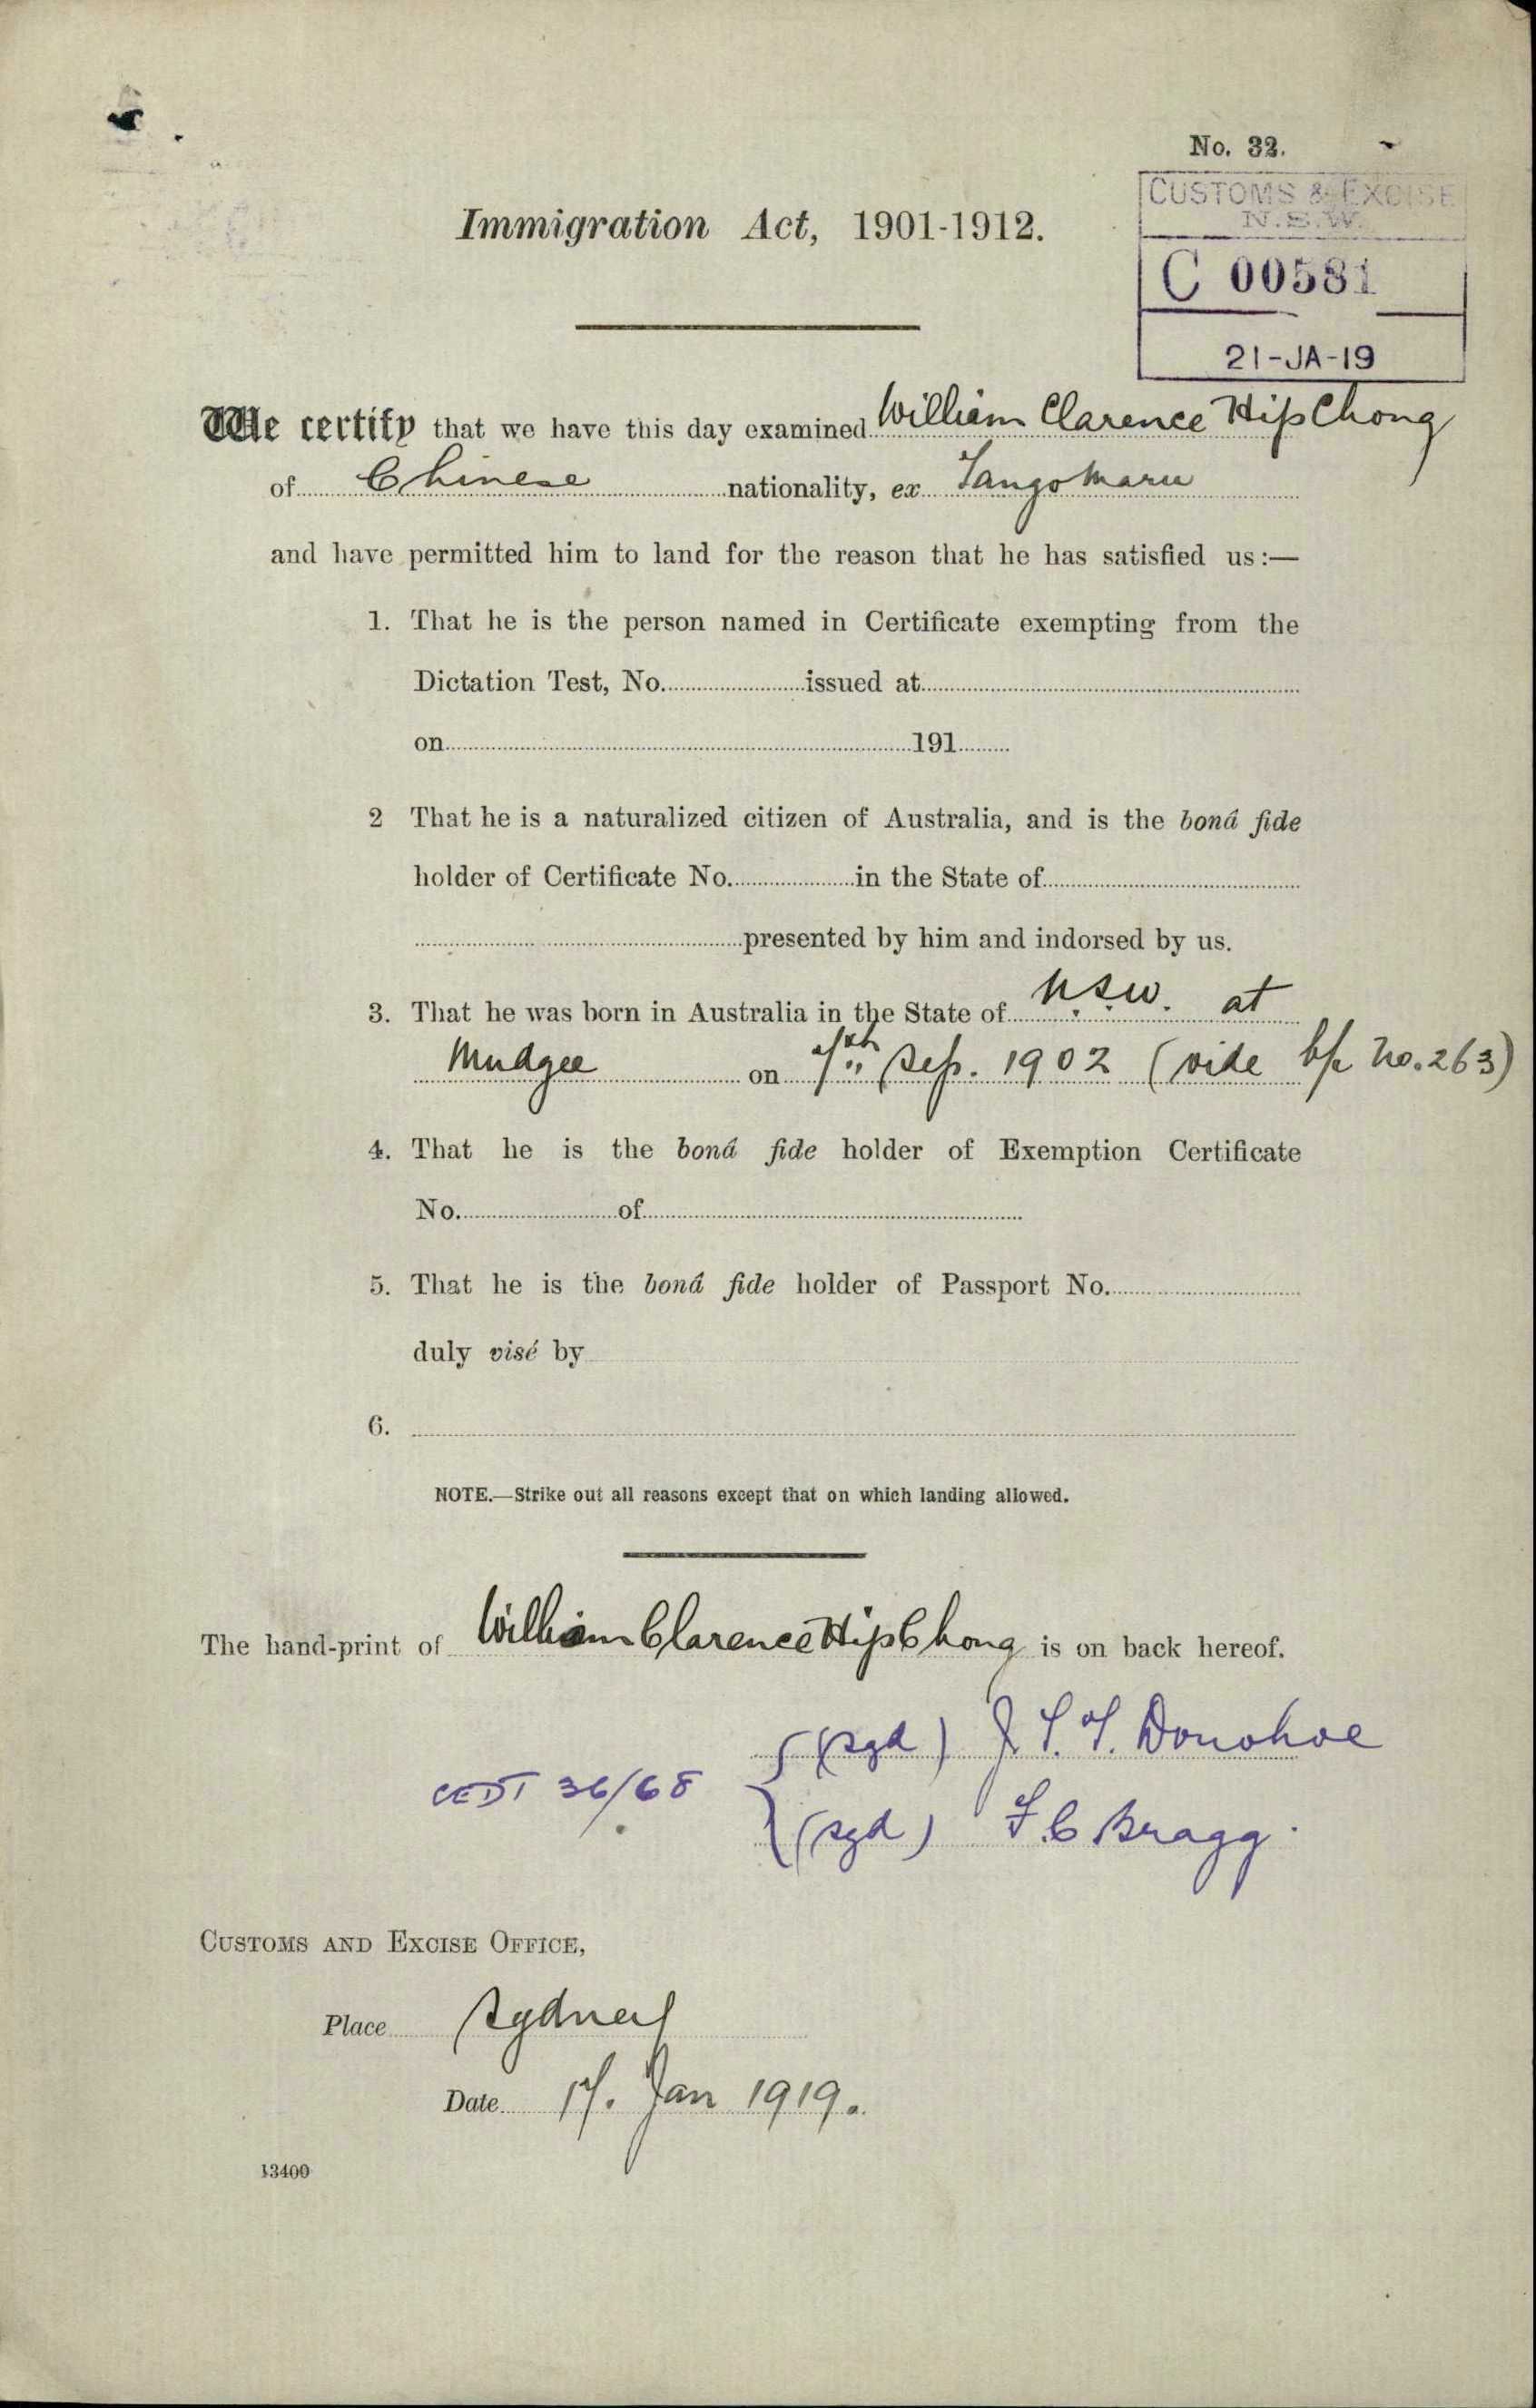 No. 32.
CUSTOMS & EXCISE
N.S.W.
C 00581
21-JA-19
Immigration Act, 1901-1912.
We certify that we have this day examined William Clarence Hip Chong
of Chinese nationality, ex Tango Maru
and have permitted him to land for the reason that he has satisfied us:—
1. That he is the person named in Certificate exempting from the
Dictation Test, No. issued at
on 191
2 That he is a naturalized citizen of Australia, and is the bonâ fide
holder of Certificate No. in the State of
presented by him and indorsed by us.
3. That he was born in Australia in the State of N.S.W. at
Mudgee on 7th Sep. 1902 (vide b/c No. 263)
4. That he is the bonâ fide holder of Exemption Certificate
No. of
5. That he is the bonâ fide holder of Passport No.
duly visé by
6.
NOTE.—Strike out all reasons except that on which landing allowed.
The hand-print of William Clarence Hip Chong is on back hereof.
(sgd) J. T. T. Donohoe
CEDT 36/68
(sgd) F. C Bragg.
CUSTOMS AND EXCISE OFFICE,
Place Sydney
Date 17. Jan 1919.
13400